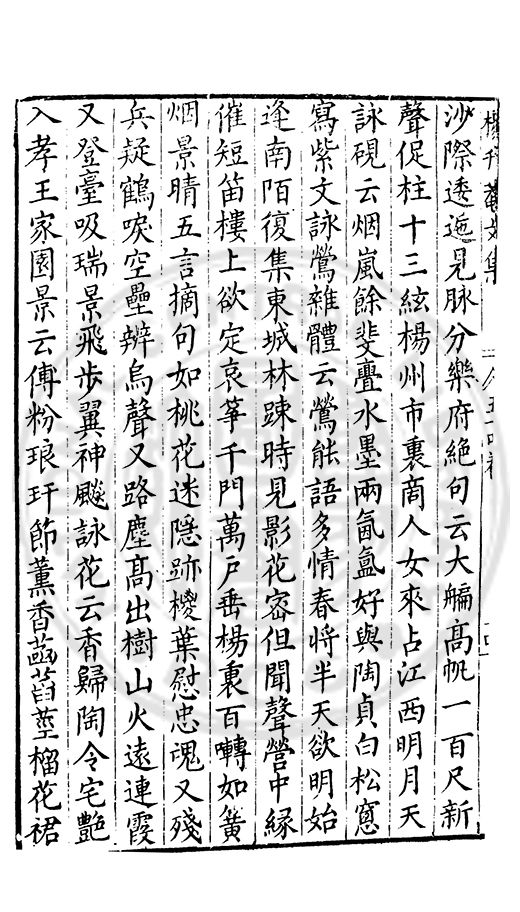 沙際逶迤見脉分樂府絶句云大艑髙帆一百尺新
聲促柱十三絃楊州市裏商人女來占江西明月天
詠硯云烟嵐餘斐亹水墨兩氤氲好與陶貞白松窻
寫紫文詠鶯雜體云鶯能語多情春將半天欲明始
逢南陌復集東城林踈時見影花宻但聞聲營中緑
催短笛樓上欲定哀筝千門萬戸垂楊裏百囀如簧
烟景晴五言摘句如桃花迷隠跡楥葉慰忠魂又殘
兵疑鶴唳空壘辨烏聲又路塵髙出樹山火遠連霞
又登臺吸瑞景飛歩翼神飈詠花云香歸陶令宅艶
入孝王家園景云傅粉琅玕節薫香菡萏莖榴花裙